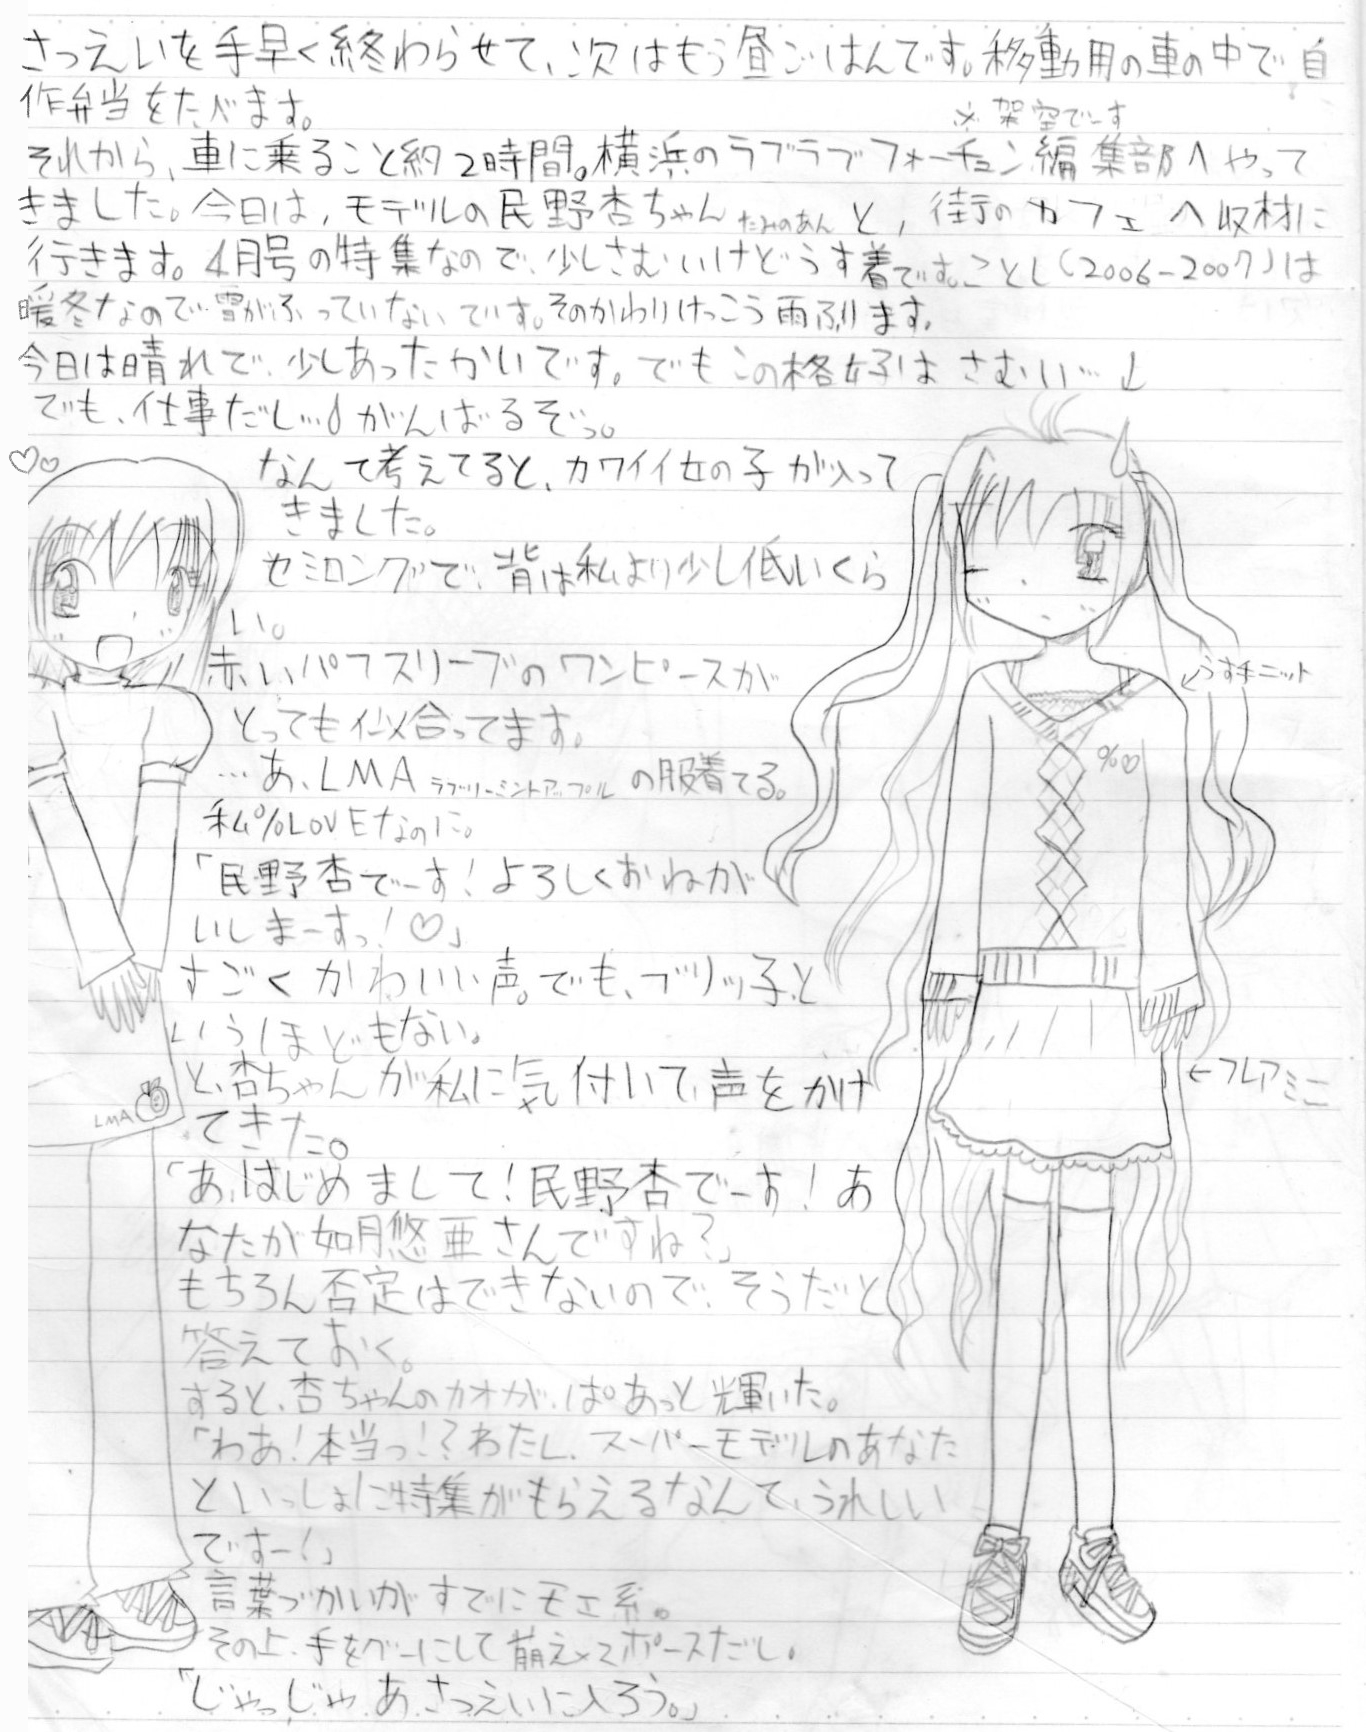 さつえいを手早く終わらせて、次はもう昼ごはんです。移動用の車の中で自
作弁当をたべます。
※架空でーす
それから、車に乗ること約2時間。横浜のラブラブフォーチュン編集部へやって
きました。今日は、モデルの民野杏ちゃんたみのあんと、街のカフェへ取材に
行きます。4月号の特集なので、少しさむいけどうす着です。ことし(2006-2007)は
暖冬なので雪がふっていないです。そのかわりけっこう雨ふります。
今日は晴れで、少しあったかいです。でもこの格好はさむい…↓
でも、仕事だし…がんばるぞっ。
♡○
なんて考えてると、カワイイ女の子が入って
きました。
セミロングで、背は私より少し低いくら
い。
赤いパフスリーブのワンピースが
とっても似合ってます。
…あ、LMAラブリーミントアップルの服着てる。
私%LOVEなのに。
「民野杏でーす!よろしくおねが
いしまーすっ!♡」
すごくかわいい声。でも、ブリッ子と
いうほどもない。
と、杏ちゃんが私に気付いて、声をかけ
てきた。
「あ、はじめまして!民野杏でーす!あ
なたが如月悠亜さんですね?」
もちろん否定はできないので、そうだと
答えておく。
すると、杏ちゃんのカオが、ぱあっと輝いた。
「わあ!本当っ!?わたし、スーパーモデルのあなた
といっしょに特集がもらえるなんて、うれしい
ですー!」
言葉づかいがすでにモエ系。
その上、手をグーにして萌え×2ポーズだし。
「じゃっじゃあ、さつえいに入ろう。」
←うす手ニット
%♡
←フレアミニ
LMA